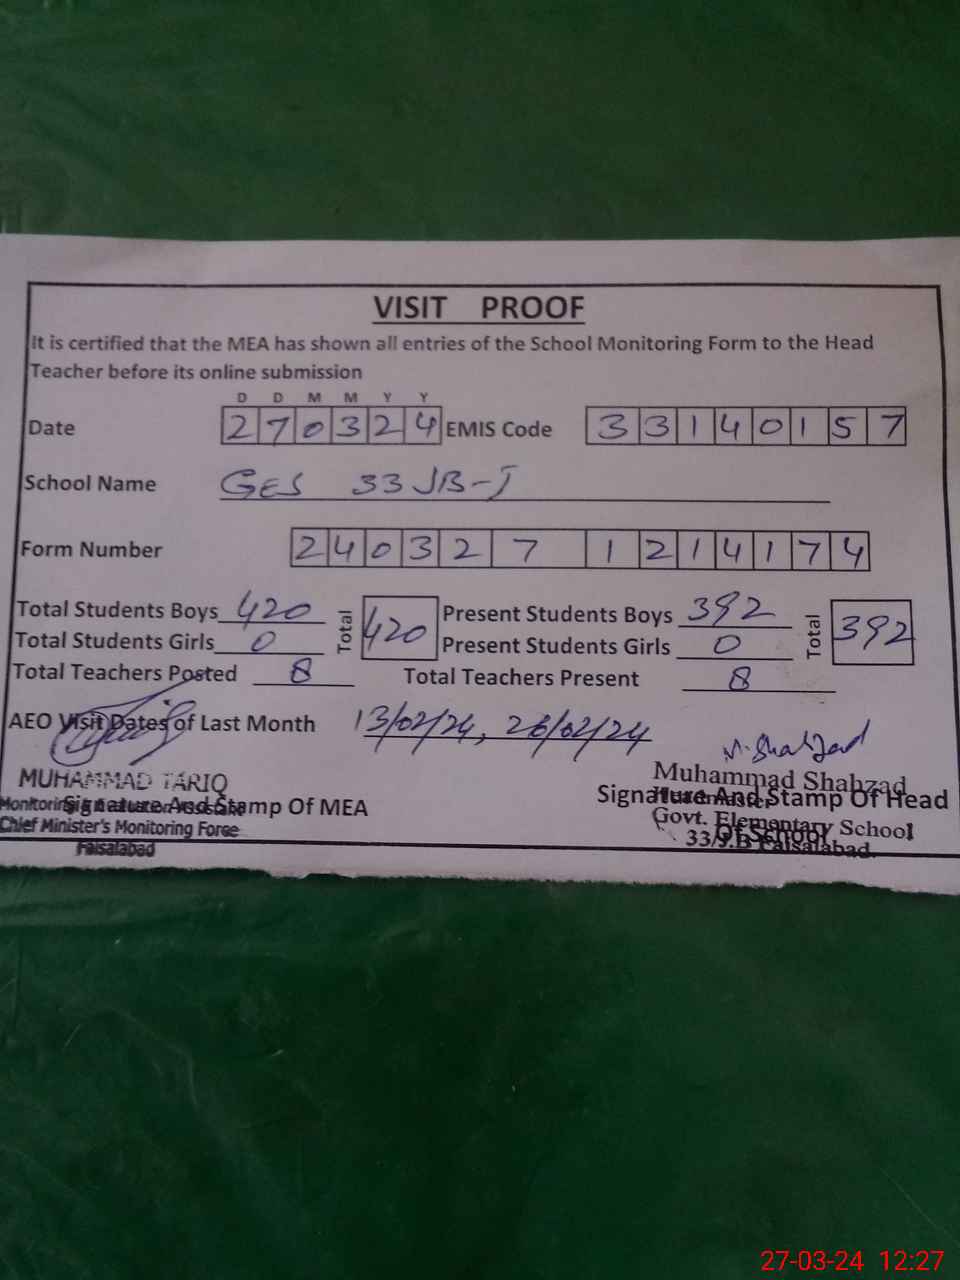 VISIT PROOF
It is certified that the MEA has shown all entries of the School Monitoring Form to the Head
Teacher before its online submission
D D M M Y Y
Date 2 7 0 3 2 4 EMIS Code 3 3 1 4 0 1 5 7
School Name GES 33 JB-I
Form Number 2 4 0 3 2 7 1 2 1 4 1 7 4
Total Students Boys 420 Total 420 Present Students Boys 392 Total 392
Total Students Girls 0 Present Students Girls 0
Total Teachers Posted 8 Total Teachers Present 8
AEO Visit Dates of Last Month 13/02/24, 26/02/24
M. Shahzad
MUHAMMAD TARIQ Muhammad Shahzad
Signature And Stamp Of MEA Signature And Stamp Of Head
Chief Minister's Monitoring Force Govt. Elementary School
Of School
Faisalabad 33/J.B Faisalabad.
27-03-24 12:27